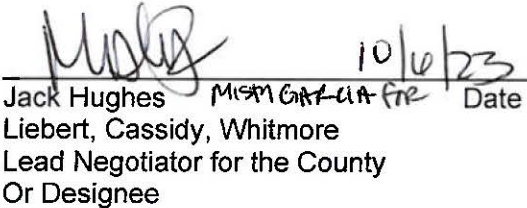 10/6/23
Jack Hughes MISM GARCIA FOR Date
Liebert, Cassidy, Whitmore
Lead Negotiator for the County
Or Designee